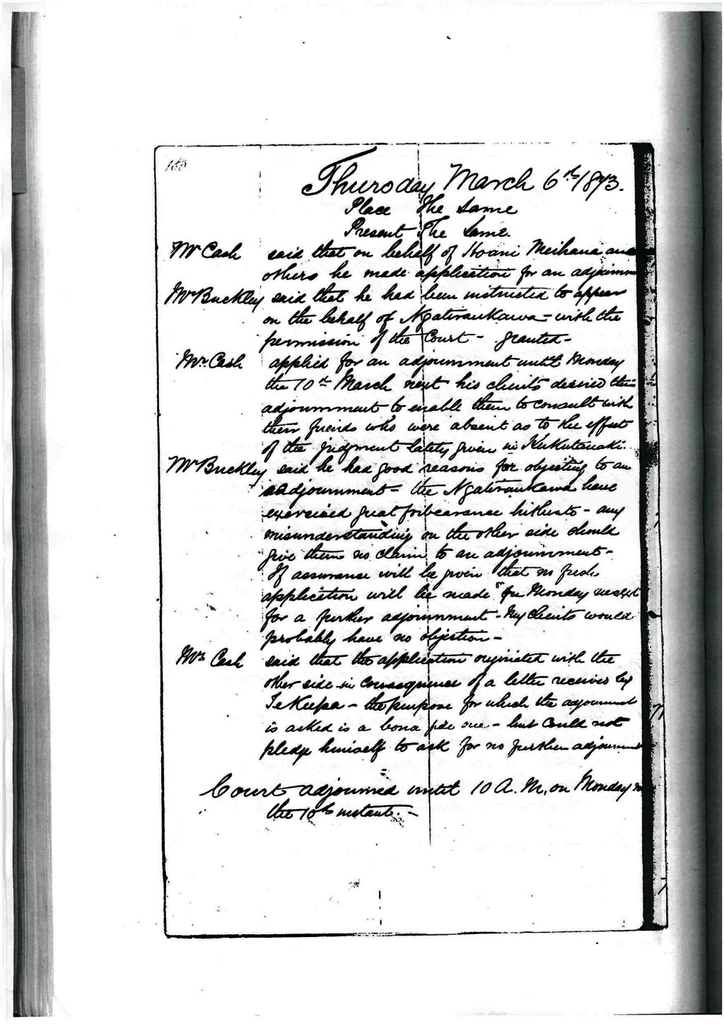 188
Thursday March 6th 1873.
Place The Same
Present The Same.
Mr Cash said that on behalf of Hoani Meihana and
others he made application for an adjournm
Mr Buckley said that he had been instructed to appear
on the behalf of Ngatiraukawa - with the
permission of the Court - granted -
Mr Cash applied for an adjournment until Monday
the 10th March next his clients desired the
adjournment to enable them to consult with
their friends who were absent as to the effect
of the judgment lately given in Kukutauaki.
Mr Buckley said he had good reasons for objecting to an
adjournment - the Ngatiraukawa have
exercised great forbearance hitherto - any
misunderstanding on the other side should
give them no claim to an adjournment -
If assurance will be given that no fresh
application will be made on Monday next
for a further adjournment - My clients would
probably have no objection -
Mr Cash said that the application originated with the
other side in consequence of a letter received by
Te Keepa - the purpose for which the adjournmt
is asked is a bona fide one - but could not
pledge himself to ask for no further adjournmt
Court adjourned until 10 A.M. on Monday
the 10th instant. -